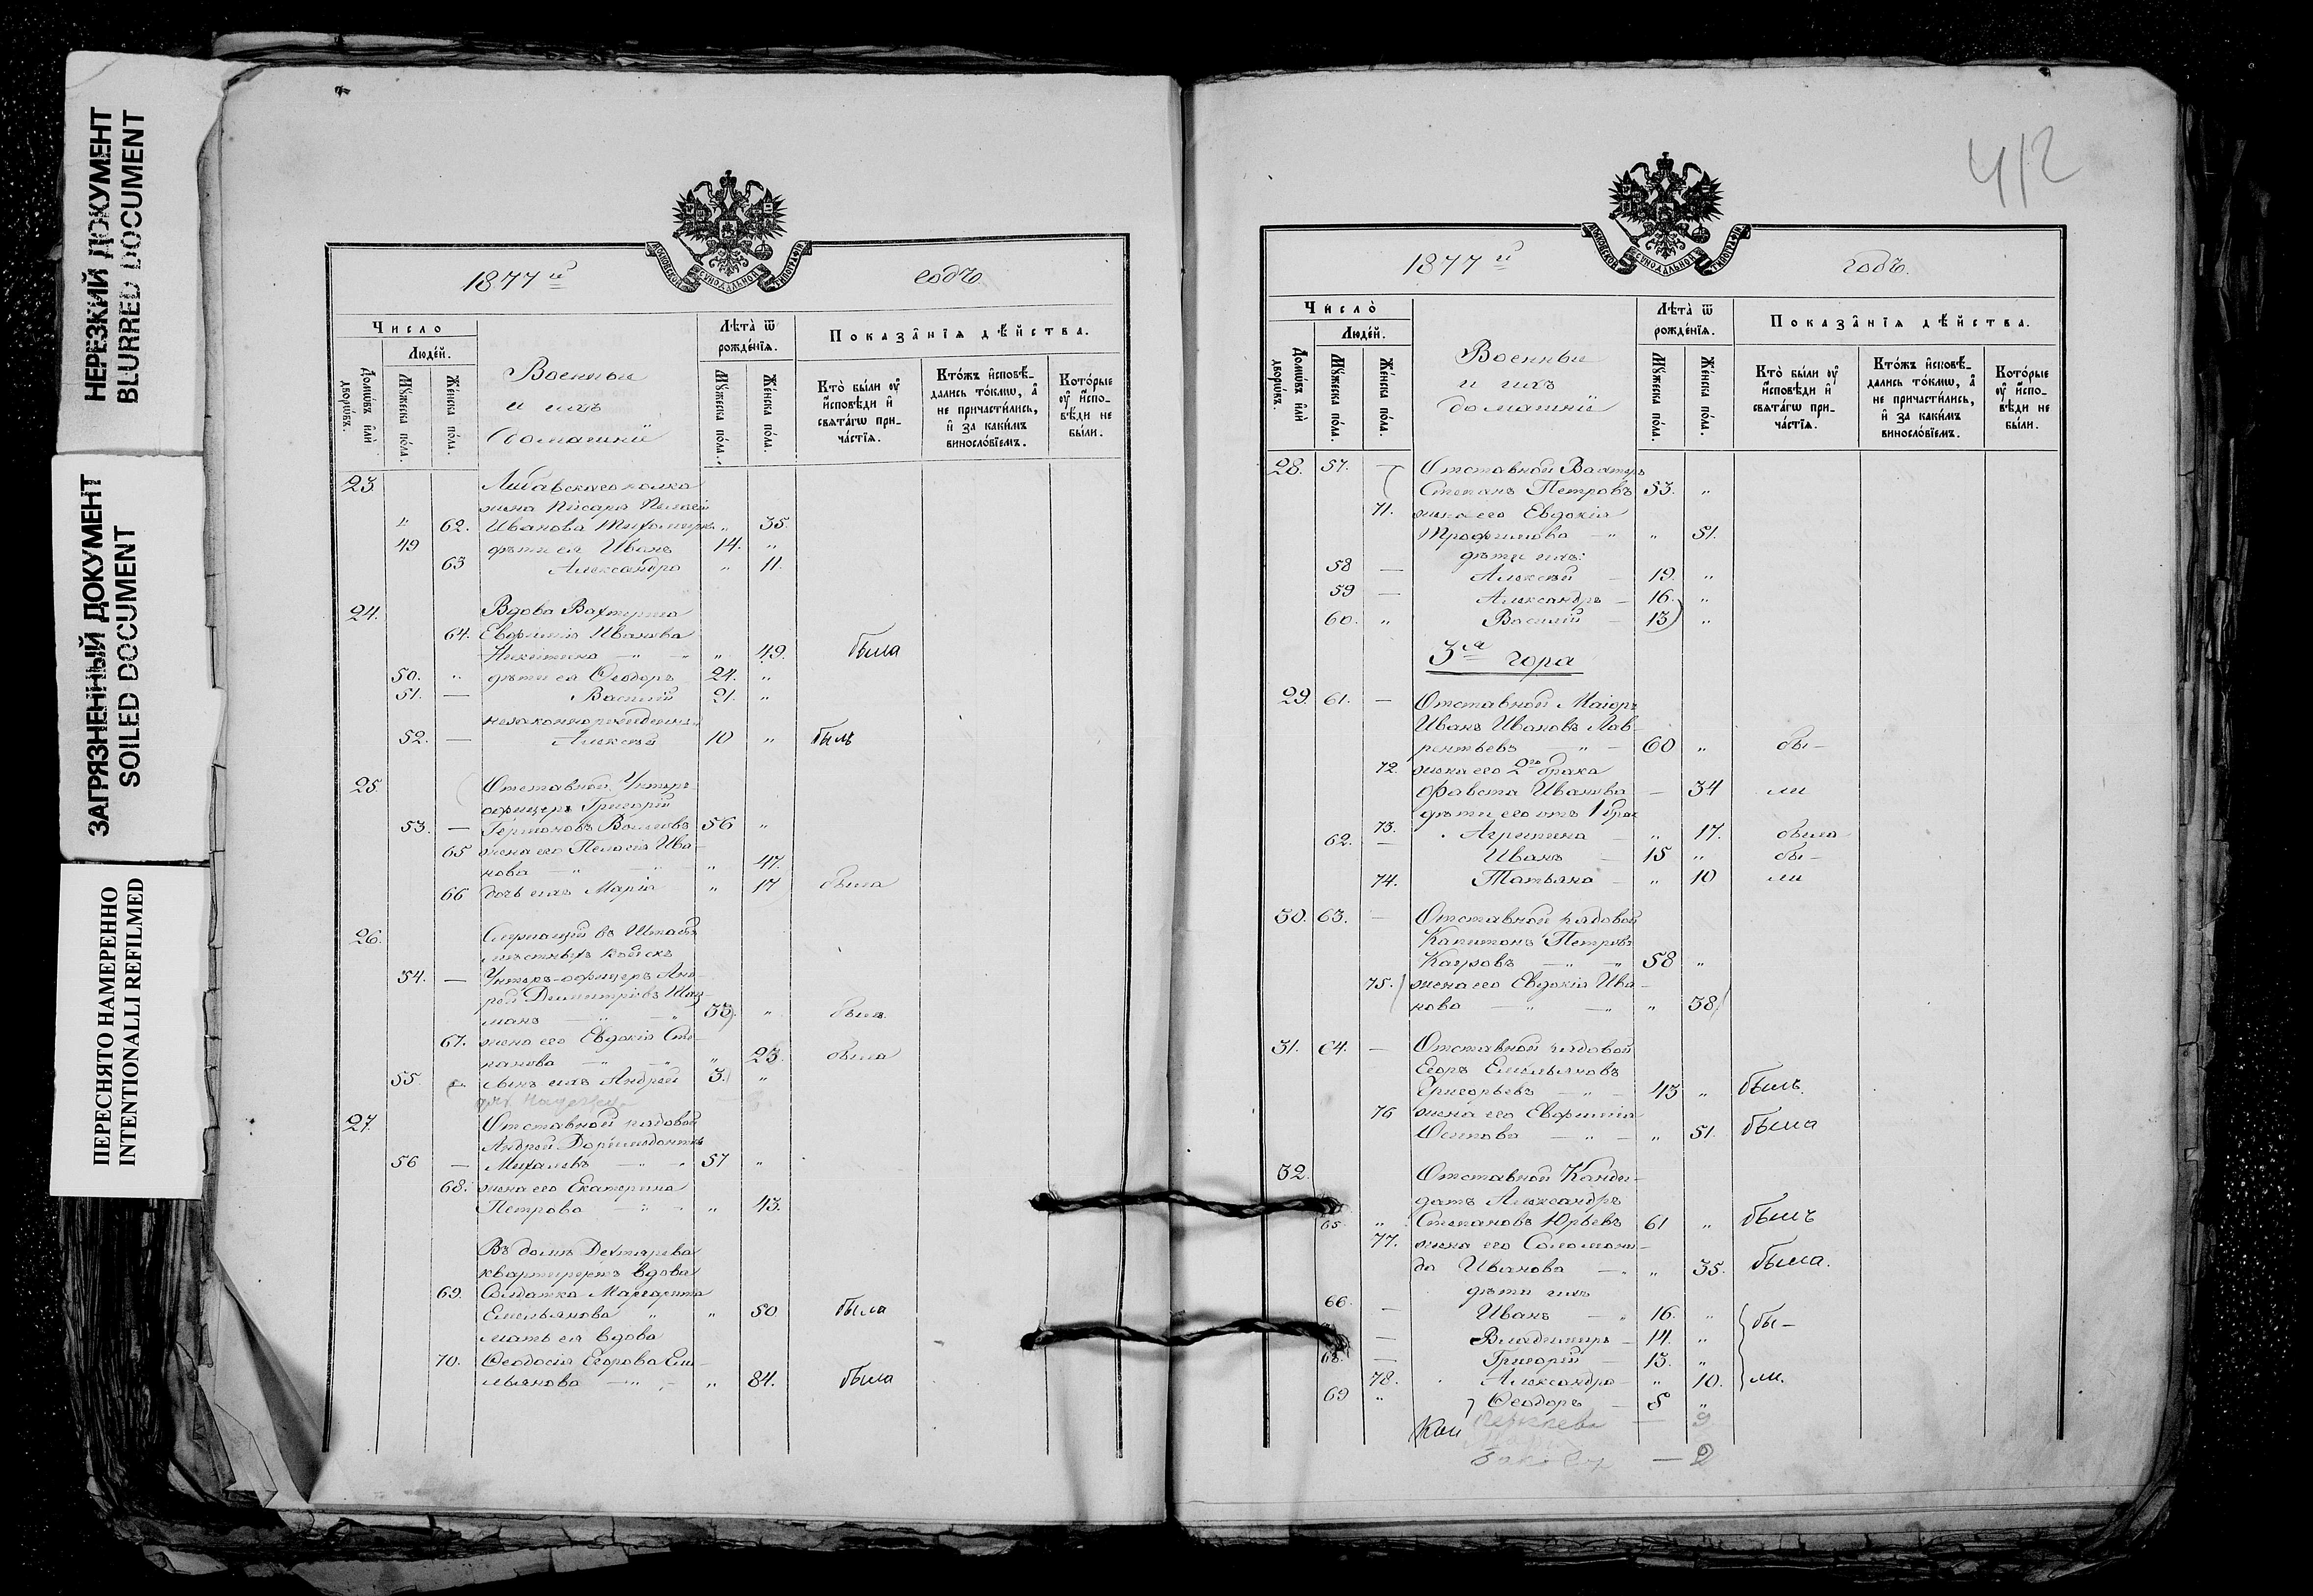 НЕРЕЗКИЙ ДОКУМЕНТ
BLURRED DOCUMENT
ЗАГРЯЗНЕННЫЙ ДОКУМЕНТ
SOILED DOCUMENT
ПЕРЕСНЯТО НАМЕРЕННО
INTENTIONALLI REFILMED
МОСКОВСКОЙ СѴНОДАЛЬНОЙ ТИПОГРАФІИ
1877й годъ
Число
Людей.
Домѡвъ или дворѡвъ.
Мужеска пола.
Женска пола.
Военныи
и ихъ
домашніи
Лѣта ѿ рожденїѧ.
Мужеска пола.
Женска пола.
Показанїѧ дѣйства.
Кто были оу исповѣди и свѧтагѡ причастїѧ.
Ктожъ исповѣдались токмѡ, а не причастились, и за какимъ винословїемъ.
Которые оу исповѣди не были.
23. Либавскаго полка
жена Писаря Пелагія
" 62. Иванова " 35.
49 дѣти ея Иванъ 14. "
63 Александра " 11.
24. Вдова Вахтера
64. Евфимія Иванова
Никитина " " " 49. была
50. " дѣти ея Ѳеодоръ 24. "
51. — Василій 21. "
незаконнорожденн.
52. — Алексѣй 10 " былъ
25. Отставной Унтеръ
офицеръ Григорій
53. — 56 "
65 жена его Пелагія Ива-
нова " " 47.
66 дочь ихъ Марія " 17 была
26. Служащій въ Штабѣ
мѣстныхъ войскъ
54. — Унтеръ-офицеръ Анд-
рей Димитріевъ
манъ — " 33. " былъ
67. жена его Евдокія Сте-
панова — " " 23. была
55 сынъ ихъ Андрей 3. "
27. Отставной рядовой
Андрей
56 — Михалевъ — " 57 "
68. жена его Екатерина
Петрова — " " 43.
Въ домѣ Дехтярева
вдова
69. Солдатка Маргарита
Емельянова " " 50 была
мать ея вдова
70. Ѳеодосія Егорова Еме-
льянова — " " 84. была
412
МОСКОВСКОЙ СѴНОДАЛЬНОЙ ТИПОГРАФІИ
1877й годъ.
Число
Людей.
Домѡвъ или дворѡвъ.
Мужеска пола.
Женска пола.
Военныи
и ихъ
домашніи
Лѣта ѿ рожденїѧ.
Мужеска пола.
Женска пола.
Показанїѧ дѣйства.
Кто были оу исповѣди и свѧтагѡ причастїѧ.
Ктожъ исповѣдались токмѡ, а не причастились, и за какимъ винословїемъ.
Которые оу исповѣди не были.
28. 57. — Отставной Вахтеръ
Степанъ Петровъ 53. "
71. жена его Евдокія
Трофимова — " " 51.
дѣти ихъ:
58 — Алексѣй — 19. "
59 — Александръ — 16. "
60. " Василій — 13 "
3я гора
29. 61. — Отставной Маіоръ
Иванъ Ивановъ Лав-
рентьевъ — " — 60 " бы-
72. жена его 2го брака
Фавста Иванова — 34 ли
дѣти его отъ 1 брак
73. Агрипина — " 17. была
62. — Иванъ — 15 " бы-
74. Татьяна — " 10 ли
30. 63. — Отставной рядовой
Капитонъ Петровъ
Кауровъ — " " 58 "
75. жена его Евдокія Ива-
нова — " — " 38
31. 64. — Отставной рядовой
Егоръ Емельяновъ
Григорьевъ — " — 43 " былъ.
76 жена его Евфимія
Осипова — " — " 51. была
32. Отставной Канди-
датъ Александръ
65. " Степановъ Юрьевъ 61 " былъ
77. жена его Соломони-
да Иванова — " " 35. была.
дѣти ихъ
66. — Иванъ — " 16. " бы-
— Владимиръ — 14. "
68. — Григорій — 13. "
78. Александра — " 10. ли.
69 " Ѳеодоръ — 8 "
— 9
— 2